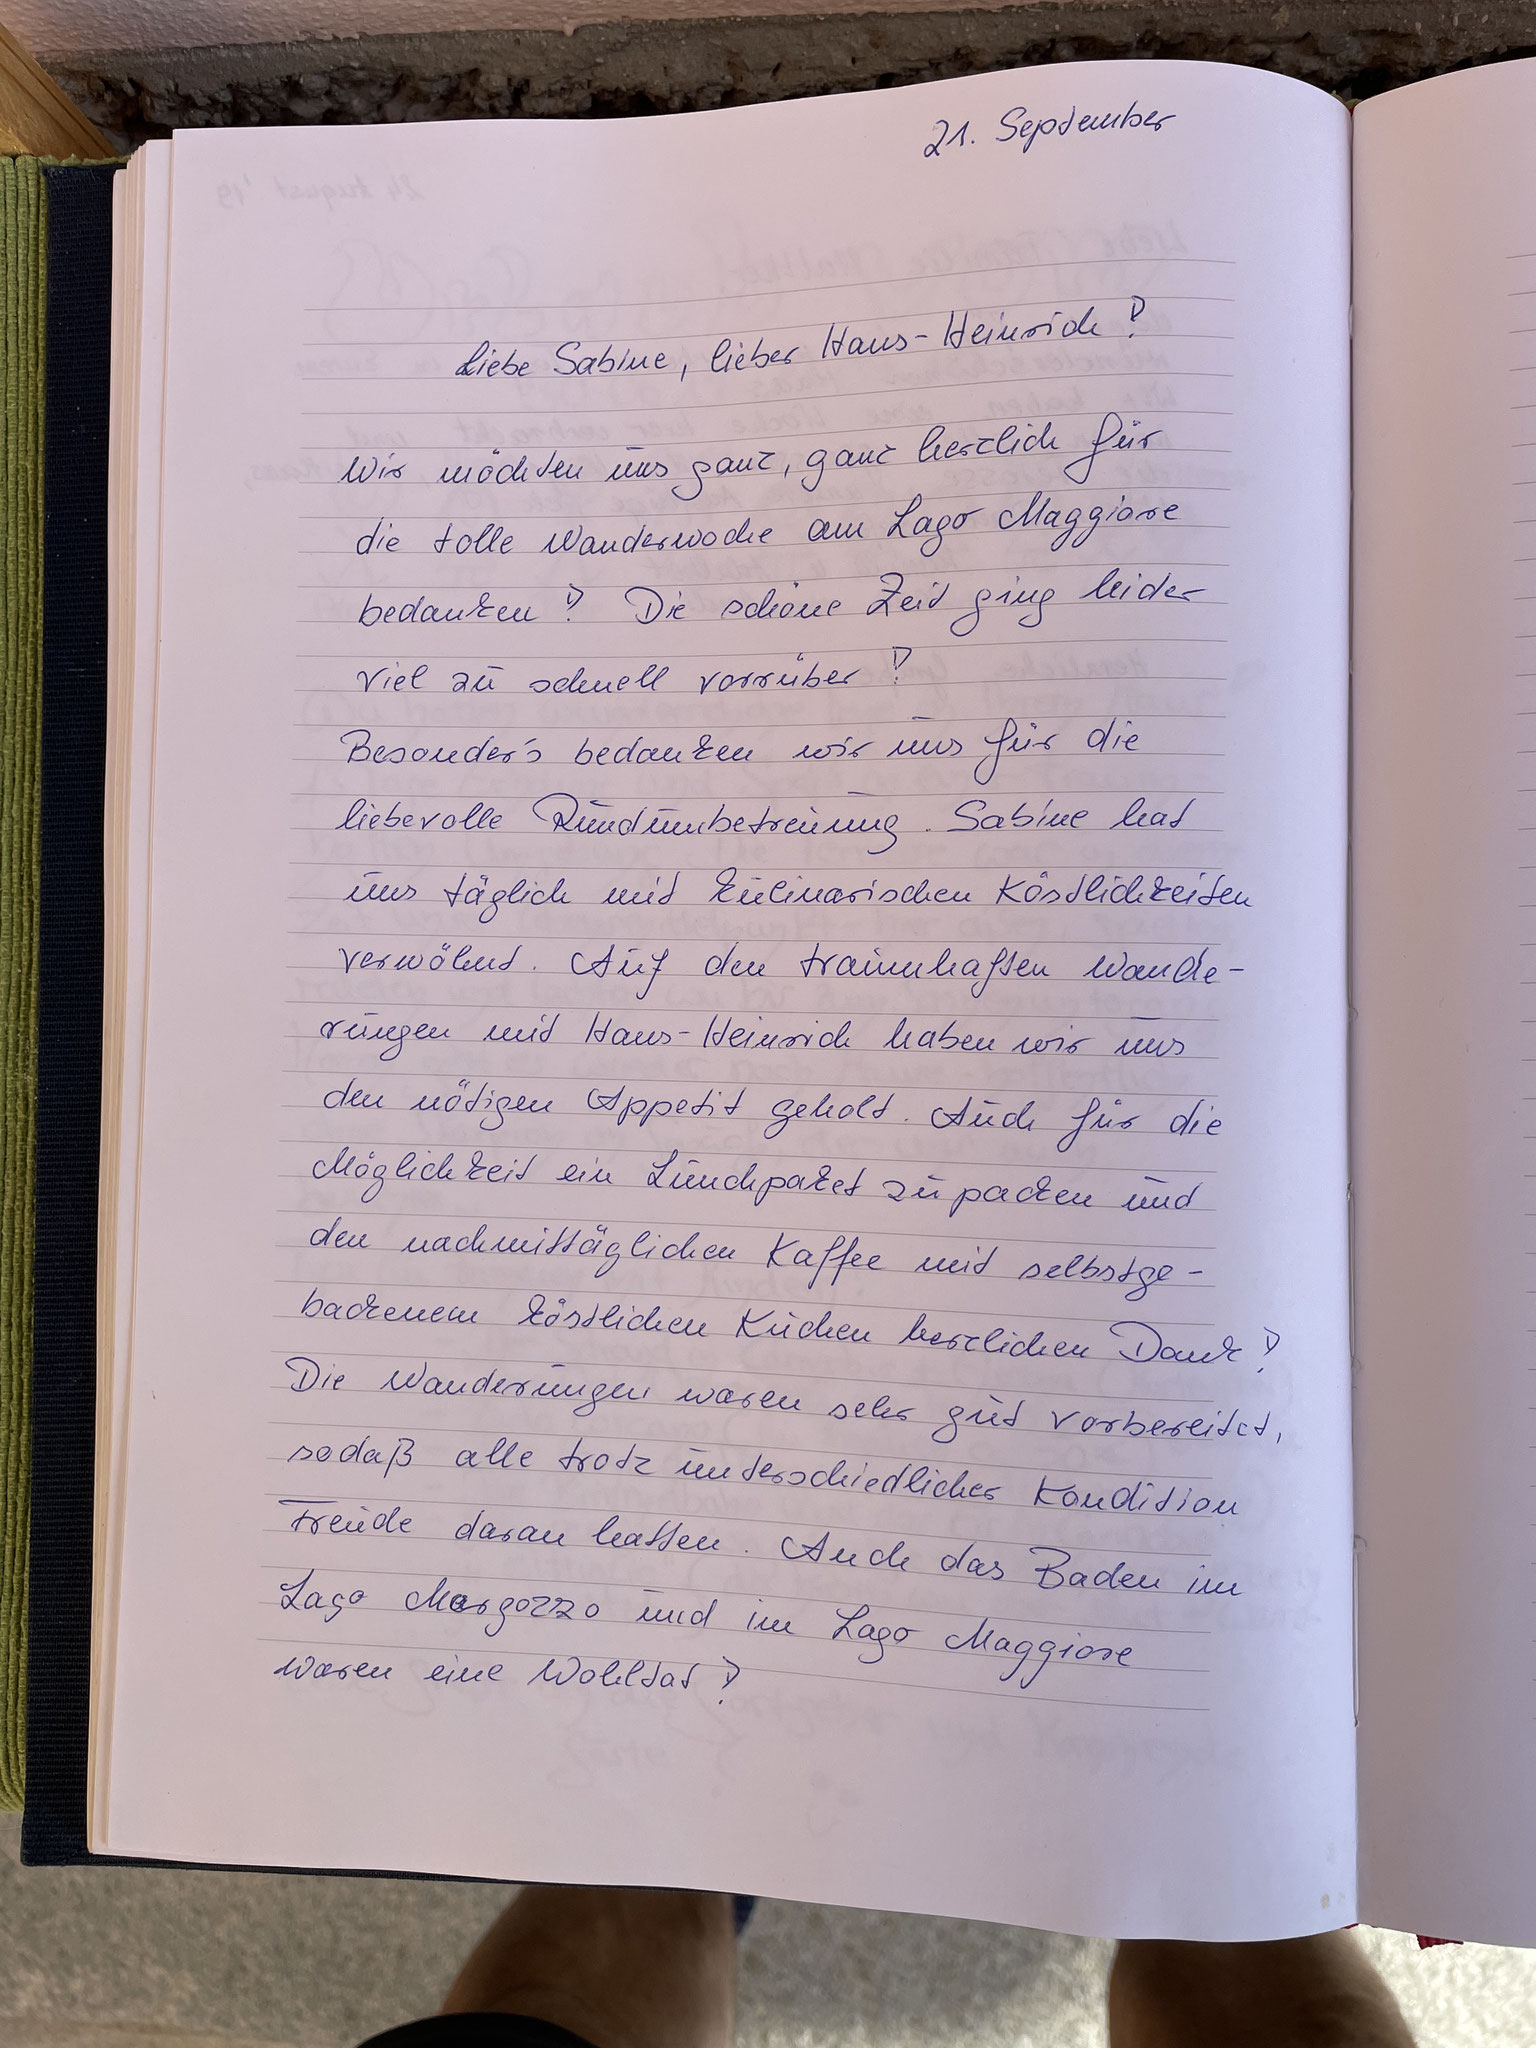 21. September
Liebe Sabine, lieber Hans-Heinrich!
Wir möchten uns ganz, ganz herzlich für
die tolle Wanderwoche am Lago Maggiore
bedanken! Die schöne Zeit ging leider
viel zu schnell vorrüber!
Besonder's bedanken wir uns für die
liebevolle Rundumbetreuung. Sabine hat
uns täglich mit kulinarischen Köstlichkeiten
verwöhnt. Auf den traumhaften Wande-
rungen mit Hans-Heinrich haben wir uns
den nötigen Appetit geholt. Auch für die
Möglichkeit ein Lunchpaket zu packen und
den nachmittäglichen Kaffee mit selbstge-
backenem köstlichen Kuchen herzlichen Dank!
Die Wanderungen waren sehr gut vorbereitet,
sodaß alle trotz unterschiedlicher Kondition
Freude daran hatten. Auch das Baden im
Lago Mergozzo und im Lago Maggiore
waren eine Wohltat!